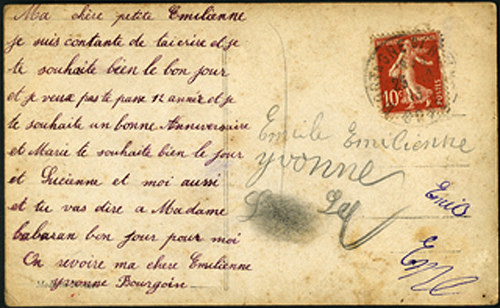 Ma chère petite Emilienne
je suis contante de taicrire et je
te souhaite bèen le bon jour
et je veux pas te passe 12 année et je
te souhaite un bonne Anniversaire
et Marie te souhaite bien le jour
it Lucienne et moi aussi
et tu vas dire a Madame
Cabaran bon jour pour moi
On revoire ma chere Emilienne
Yvonne Bourgoin
10c
POSTES
Emile Emilienne
Yvonne
Emile